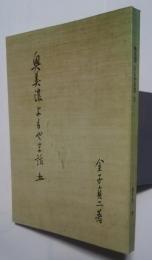 奥美濃よもやま話 五
金子貞二著